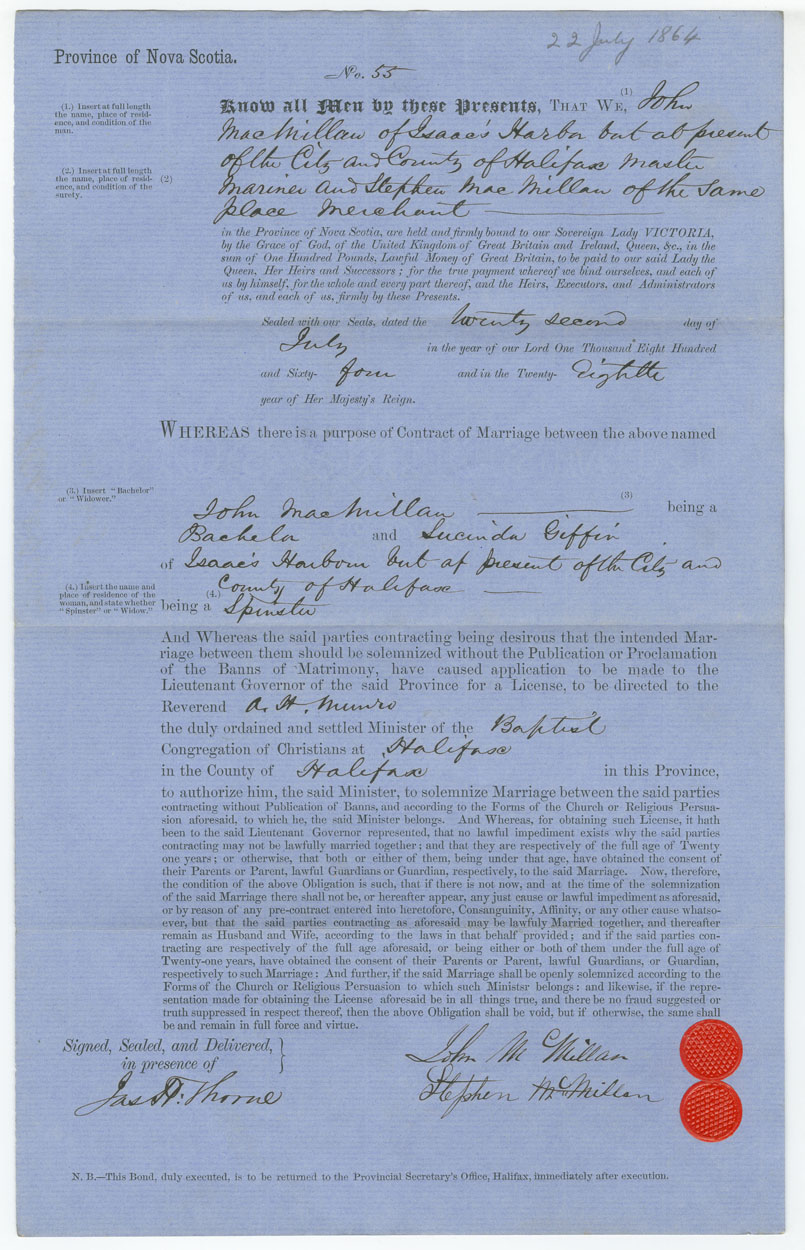 22 July 1864
Province of Nova Scotia.
No. 55
(1.) Insert at full length
the name, place of resid-
ence, and condition of the
man.
(2.) Insert at full length
the name, place of resid-
ence, and condition of the
surety.
(1)
Know all Men by these Presents, THAT WE, John
MacMillan of Isaac's Harbor but at present
(2) of the City and County of Halifax Master
Mariner and Stephen MacMillan of the same
place Merchant
in the Province of Nova Scotia, are held and firmly bound to our Sovereign Lady VICTORIA,
by the Grace of God, of the United Kingdom of Great Britain and Ireland, Queen, &c., in the
sum of One Hundred Pounds, Lawful Money of Great Britain, to be paid to our said Lady the
Queen, Her Heirs and Successors; for the true payment whereof we bind ourselves, and each of
us by himself, for the whole and every part thereof, and the Heirs, Executors, and Administrators
of us, and each of us, firmly by these Presents.
Sealed with our Seals, dated the twenty second day of
July in the year of our Lord One Thousand Eight Hundred
and Sixty- four and in the Twenty- Eighth
year of Her Majesty's Reign.
WHEREAS there is a purpose of Contract of Marriage between the above named
(3.) Insert "Bachelor"
or "Widower."
(3)
John MacMillan being a
Bachelor and Lucinda Giffin
of Isaac's Harbour but at present of the City and
(4.) Insert the name and
place of residence of the
woman, and state whether
"Spinster" or "Widow."
County of Halifax
(4.)
being a Spinster
And Whereas the said parties contracting being desirous that the intended Mar-
riage between them should be solemnized without the Publication or Proclamation
of the Banns of Matrimony, have caused application to be made to the
Lieutenant Governor of the said Province for a License, to be directed to the
Reverend A. H. Munro
the duly ordained and settled Minister of the Baptist
Congregation of Christians at Halifax
in the County of Halifax in this Province,
to authorize him, the said Minister, to solemnize Marriage between the said parties
contracting without Publication of Banns, and according to the Forms of the Church or Religious Persua-
sion aforesaid, to which he, the said Minister belongs. And Whereas, for obtaining such License, it hath
been to the said Lieutenant Governor represented, that no lawful impediment exists why the said parties
contracting may not be lawfully married together; and that they are respectively of the full age of Twenty
one years; or otherwise, that both or either of them, being under that age, have obtained the consent of
their Parents or Parent, lawful Guardians or Guardian, respectively, to the said Marriage. Now, therefore,
the condition of the above Obligation is such, that if there is not now, and at the time of the solemnization
of the said Marriage there shall not be, or hereafter appear, any just cause or lawful impediment as aforesaid,
or by reason of any pre-contract entered into heretofore, Consanguinity, Affinity, or any other cause whatso-
ever, but that the said parties contracting as aforesaid may be lawfuly Married together, and thereafter
remain as Husband and Wife, according to the laws in that behalf provided; and if the said parties con-
tracting are respectively of the full age aforesaid, or being either or both of them under the full age of
Twenty-one years, have obtained the consent of their Parents or Parent, lawful Guardians, or Guardian,
respectively to such Marriage: And further, if the said Marriage shall be openly solemnized according to the
Forms of the Church or Religious Persuasion to which such Minister belongs: and likewise, if the repre-
sentation made for obtaining the License aforesaid be in all things true, and there be no fraud suggested or
truth suppressed in respect thereof, then the above Obligation shall be void, but if otherwise, the same shall
be and remain in full force and virtue.
Signed, Sealed, and Delivered,
in presence of
John McMillan
Jas H. Thorne
Stephen McMillan
N. B.—This Bond, duly executed, is to be returned to the Provincial Secretary's Office, Halifax, immediately after execution.